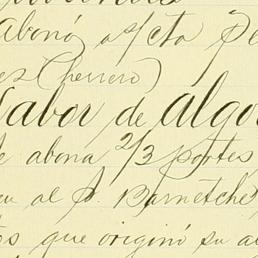 abonó a/cta Pe
es (herrero)
Labor de algo
e abona 2/3 partes
eu al S. Barnetche
s que originó su a